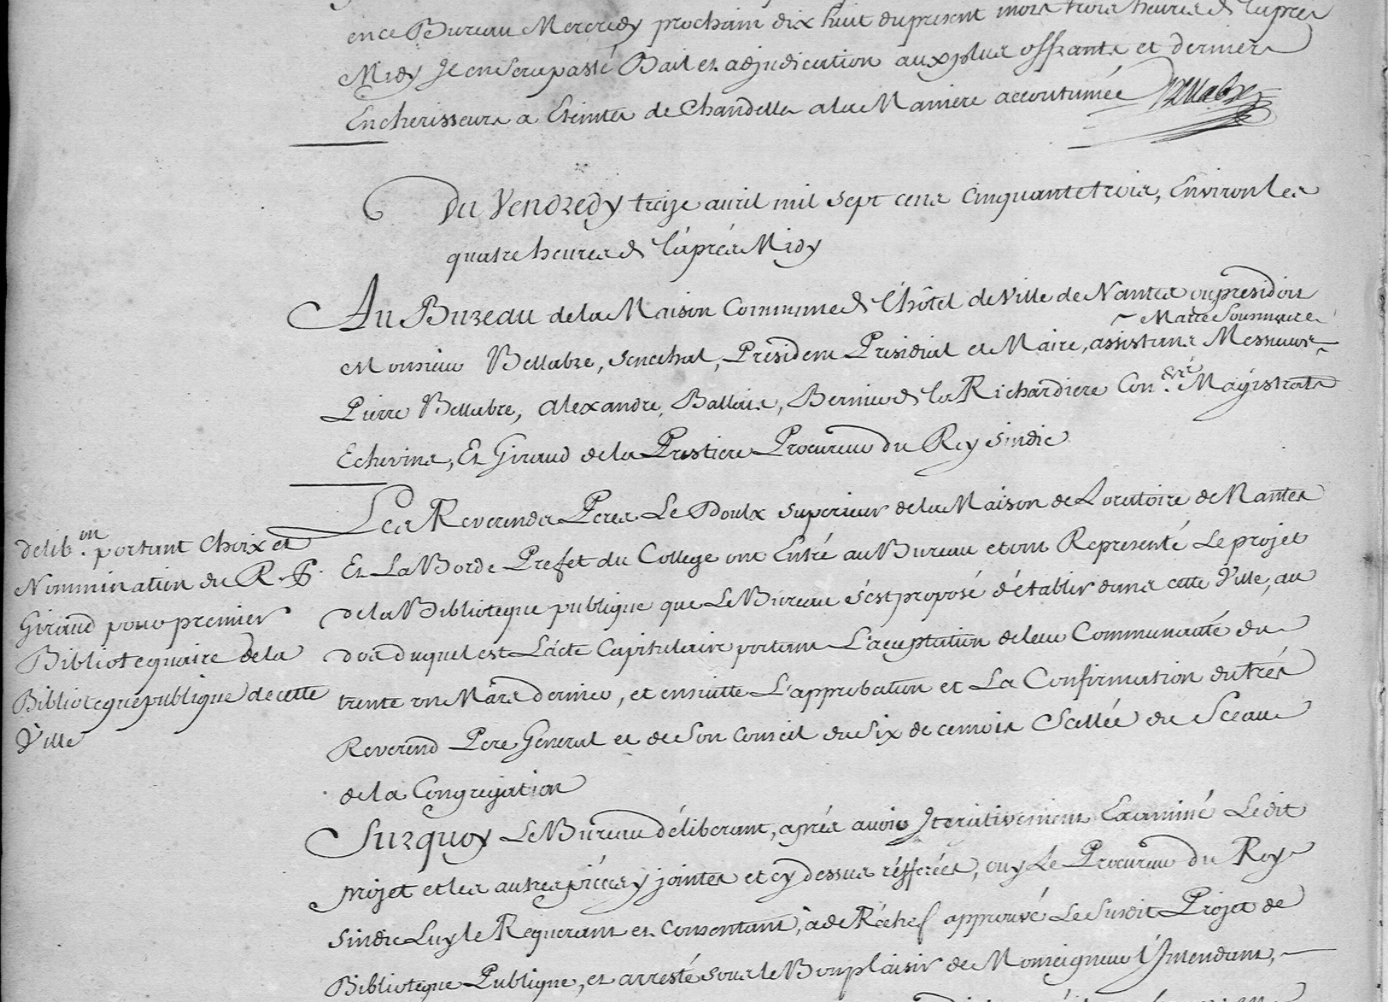 ence Bureau Mercredy prochain dix huit du present mois trois heures de l'apres
Midy Il en sera passé Bail et adjudication aux plus offrants et derniers
Encherisseurs a Eteintes de Chandelles a la Maniere accoutumée Bellabre
Du Vendredy treize avril mil sept cens cinquante trois, Environ les
quatre heures de l'aprés Midy
Au Bureau de la Maison Commune de l'hôtel de Ville de Nantes ou presidoit
Monsieur Bellabre, Senechal, President Presidial et Maire, assistans Messieurs
Maitre
Pierre Bellabre, Alexandre, Ballais, Bernier de la Richardiere Con.ers Magistrats
Echevins, Et Giraud de la Procureur du Roy sindic
Les Reverends Peres Le Doulx superieur de la Maison de Loratoire de Nantes
Et La Borde Prefet du College ont Entré au Bureau et ont Representé Le projet
de la Biblioteque publique que Le Bureau s'est proposé d'établir dans cette Ville, au
dos duquel est L'acte Capitulaire portant L'aceptation de leur Communauté du
trente un Mars dernier, et ensuitte L'approbation et La Confirmation du trés
Reverend Pere General et de Son Conseil du Six de ce mois Scellée du Sceau
de la Congregation
delib.on portant Choix et
Nommination du R. P.
Giraud pour premier
Bibliotequaire de la
Biblioteque publique de cette
Ville
Surquoy Le Bureau déliberant, aprés avoir Iterativement Examiné Ledit
projet et les autres piéces y jointes et cy dessus réfferées, ouy Le Procureur du Roy
Sindic Luy le Requerant et Consentant, a de Réchef approuvé Le Susdit Projet de
Biblioteque Publique, et arresté sous le Bon plaisir de Monseigneur l'Intendant,